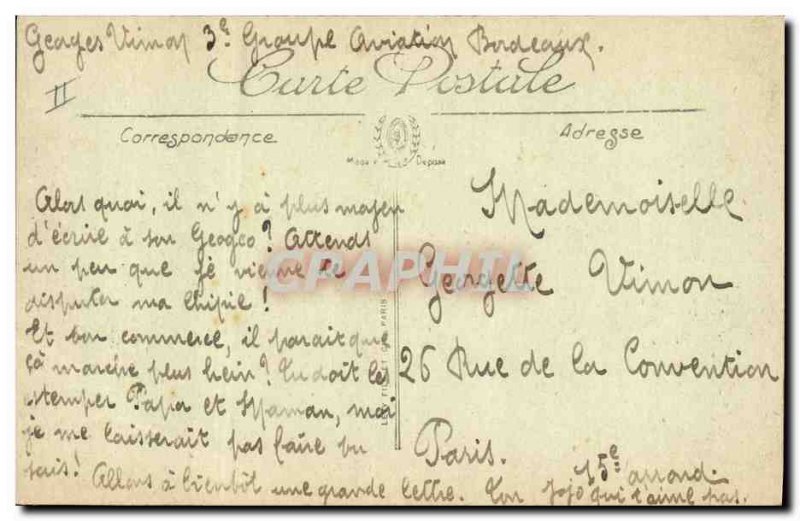 Georges Vimon 3e Groupe Aviation Bordeaux.
Carte Postale
II
Correspondance
Adresse
Déposé
Alors quoi, il n'y a plus moyen
d'écrire à son Geogeo? Attends
un peu que je vienne te
disputer ma chipie!
Et ton commerce, il parait que
ça marche plus hein? Tu doit les
estemper Papa et Maman, moi
je me laisserait pas faire tu
sais! Allons à bientôt une grande lettre. Ton Jojo qui t'aime pas.
Mademoiselle
Georgette Vimon
26 Rue de la Convention
Paris.
15e arrond.
CPAPHIL
PARIS